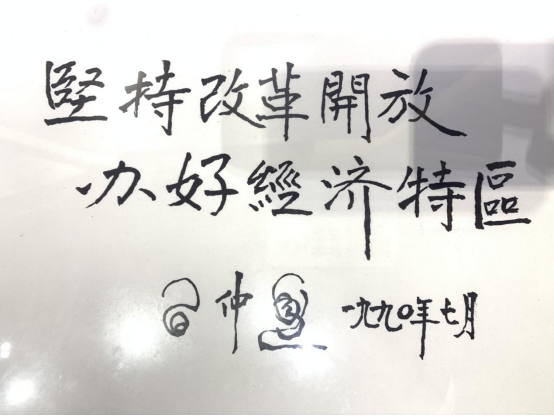 堅持改革開放
办好經济特區
习仲勋 一九九〇年七月